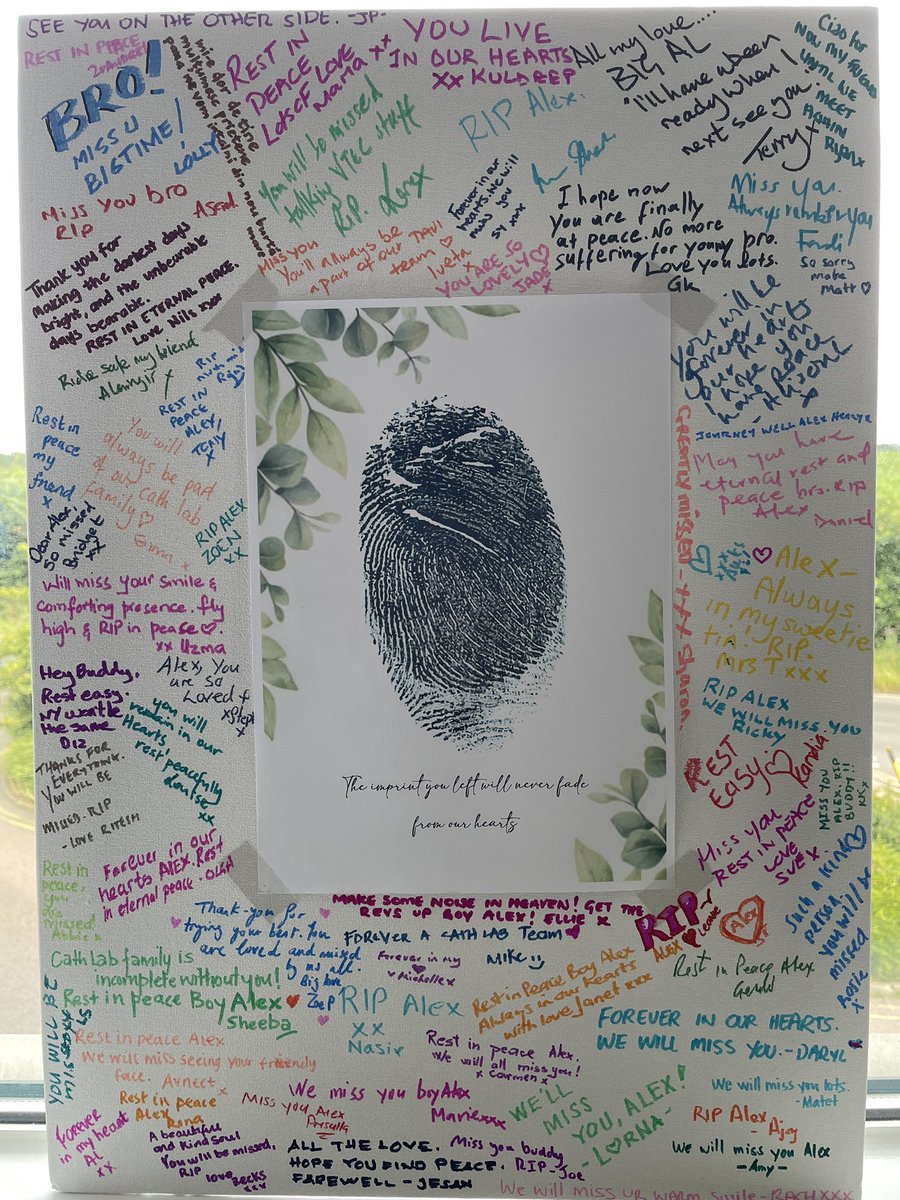 SEE YOU ON THE OTHER SIDE. -JP-
REST IN PEACE
BRO!
MISS U
BIGTIME!
LOLLY
REST IN
PEACE
LOTS OF LOVE
Maria xx
YOU LIVE
IN OUR HEARTS
xx KULDEEP
All my love....
BIG AL
"I'll have when
ready when I
next see you"
Terry x
Ciao for
Now my
UNTIL WE
MEET
AGAIN
Ryan x
You will be missed
talking VT&C stuff
R.I.P.
RIP Alex.
Forever in our
hearts. We will
miss you
sy xxx
I hope now
you are finally
at peace. No more
suffering for you my bro.
Love you lots.
GK
Miss you.
Always remember you
Fardi
So sorry
mate
Matt ♡
Miss You bro
RIP
Asad
Thank you for
making the darkest days
bright, and the unbearable
days bearable.
REST IN ETERNAL PEACE.
Love Nils xxx
MISS YOU
You'll always be
a part of our TAVI
team ♡
Iveta x
YOU ARE SO
LOVELY ♡
JADE x
You will be
forever in
our hearts
I hope you
have peace
Ride safe my friend
Alamgir
RIP
REST IN
PEACE
ALEX!
TONY
x
Rest in
peace
my
friend
x
You will
always be part
of our cath lab
family ♡
Dear Alex
So missed
Bridget
xx
RIP ALEX
ZOEN
xx
GREATLY MISSED - xxx Sharon
JOURNEY WELL ALEX HENRY x
May you have
eternal rest and
peace bro. RIP
Alex
Daniel
Alex -
Always
in my sweetie
tin! RIP.
Mrs T xxx
Will miss your smile &
comforting presence. fly
high & RIP in pease ♡.
xx Uzma
Hey Buddy,
Rest easy.
the same
DIZ
Alex, You
are so
Loved
xSteph
x
you will
remain in our
Hearts
rest peacefully
xx
RIP ALEX
WE WILL MISS YOU
RICKY
THANKS FOR
EVERYTHING.
YOU WILL BE
MISSED. RIP
- LOVE RITESH
REST
EASY ♡
Kandia
MISS YOU
ALEX. RIP
BUDDY!!
KK x
Miss you
REST IN PEACE
LOVE
SUE x
The imprint you left will never fade
from our hearts
Rest in
peace,
you
are
missed
Forever in our
hearts ALEX. Rest
in eternal peace. - OLGA
MAKE SOME NOISE IN HEAVEN! GET THE
REVS UP BOY ALEX! ELLIE x
Such a kind ♡
person.
you will be
missed
Rosie
x
Thank-you for
trying your best. You
are loved and missed
by us all.
Big love
Zoe P
FOREVER A CATH LAB TEAM ♥
Forever in my
♥
x Michelle x
Mike
RIP
ALEX
Leanne
Alex
Rest in Peace Alex
Gerald
Cath Lab family is
incomplete without you!
Rest in peace Boy Alex ♥
Sheeba
RIP Alex
xx
Nasir
Rest in Peace Boy Alex
Always in our Hearts
with love Janet xxx
FOREVER IN OUR HEARTS.
WE WILL MISS YOU. - DARYL ♥
YOU WILL BE
Rest in peace Alex
We will miss seeing you friendly
face. Avneet x
Rest in peace Alex.
We will all miss you!
x Carmen x
Rest in peace
Alex
Rona
Miss you Alex
Priscilla
We miss you boy Alex
Marie xxx
WE'LL
MISS
YOU, ALEX!
- LORNA -
We will miss you lots.
- Matet
RIP Alex
- Ajay
We will miss you Alex
- Amy -
Forever
in my heart
Al
xx
A beautiful
and kind soul
You will be missed.
RIP
love Becks
xxx
ALL THE LOVE.
HOPE YOU FIND PEACE.
FAREWELL - JESAN
Miss you buddy
RIP - Joe
We will miss ur warm smile